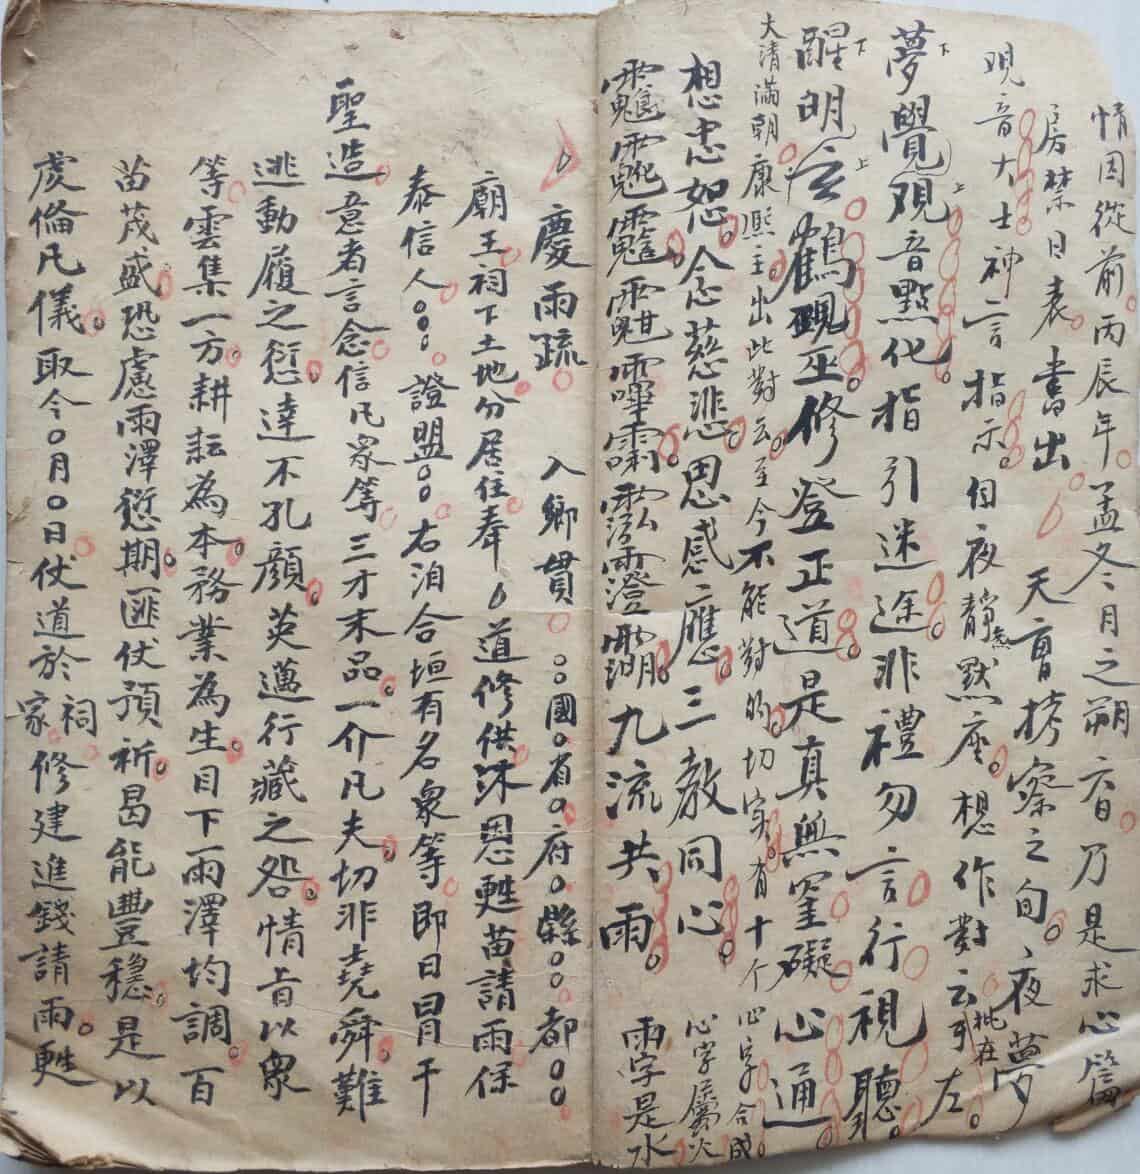 情因從前丙辰年孟冬月之朔六日乃是求心篇
房禁日表書出 天育榜寮之旬夜夢
观音大士神言指示自夜靜點默座想作對云批在左
夢覺观音點化指引迷途非禮勿言行視聽
醒明云鶴覡巫修登正道是真無窒礙心通
大清滿朝康熙主出此對云至今不能對的切实有十个心字合成
想忠恕念念慈悲思感感應三教同心 心字屬火
九流共雨 雨字是水
慶雨疏 入鄉貫〇〇〇國〇省〇府〇縣〇〇都〇〇
廟王祠下土地分居住奉道修供沐恩甦苗請雨保
泰信人〇〇〇證盟〇〇右洎合垣有名衆等即日冒干
聖造意者言念信凡衆等三才末品一介凡夫切非堯舜難
逃動履之愆達不孔顏英邁行藏之咎情旨以衆
等雲集一方耕耘為本務業為生目下雨澤均調百
苗茂盛恐慮雨澤愆期匪伏預祈曷能豐穩是以
虔倫凡儀取今〇月〇日仗道於祠家修建進錢請雨甦